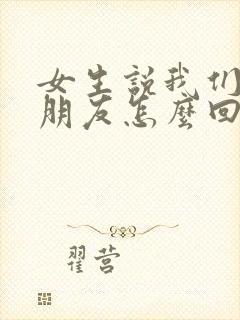 女生説我们
朋友怎麼回
翟营